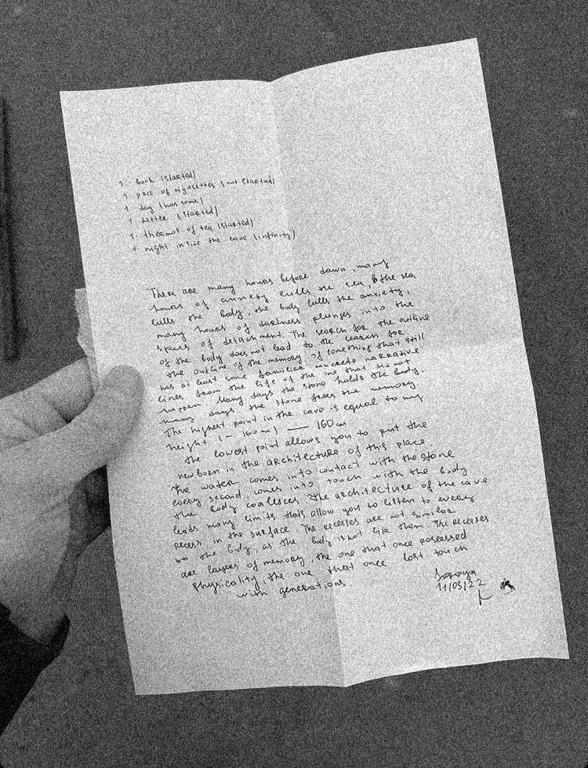 1 book (started)
1 pace of cigarettes (not started)
1 day (has come)
1 letter (started)
1 thermos of tea (started)
1 night inside the cave (infinity)
There are many hours before dawn, many
hours of anxiety lulls the sea & the sea
lulls the body, the body lulls the anxiety,
many hours of surliness plunges into the
space of detachment. The search for the outline
of the body does not lead to the search for
the outline of the memory of something that still
has at least some familiar concrete narrative
lines from the life of the one that did not
happen. Many days the stone holds the body,
many days the stone frees the memory
The highest point in the cave is equal to my
height (- 160 cm) — 160 cm
the lowest point allows you to put the
newborn in the architecture of this place
The water comes into contact with the stone
every second, comes into touch with the body
the body coalesces. The architecture of the cave
leads many limits thats allow you to listen to every
recess in the surface. The recesses are not similar
to the body, as the body is not like them. The recesses
are layers of memory, the one that once possessed
physicality, the one that once lost touch
with generations
11/05/22